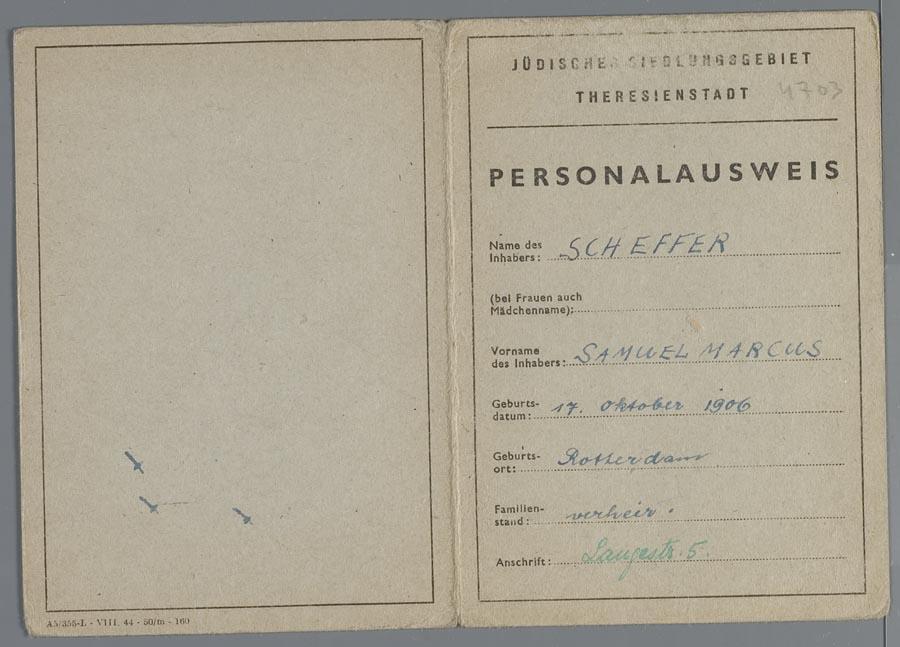 JÜDISCHES SIEDLUNGSGEBIET
THERESIENSTADT 4703
PERSONALAUSWEIS
Name des
Inhabers: SCHEFFER
(bei Frauen auch
Mädchenname):
Vorname
des Inhabers: SAMUEL MARCUS
Geburts-
datum: 17. Oktober 1906
Geburts-
ort: Rotterdam
Familien-
stand: verheir.
Anschrift: Langestr. 5.
A5/355-L - VIII. 44 - 50/m - 160